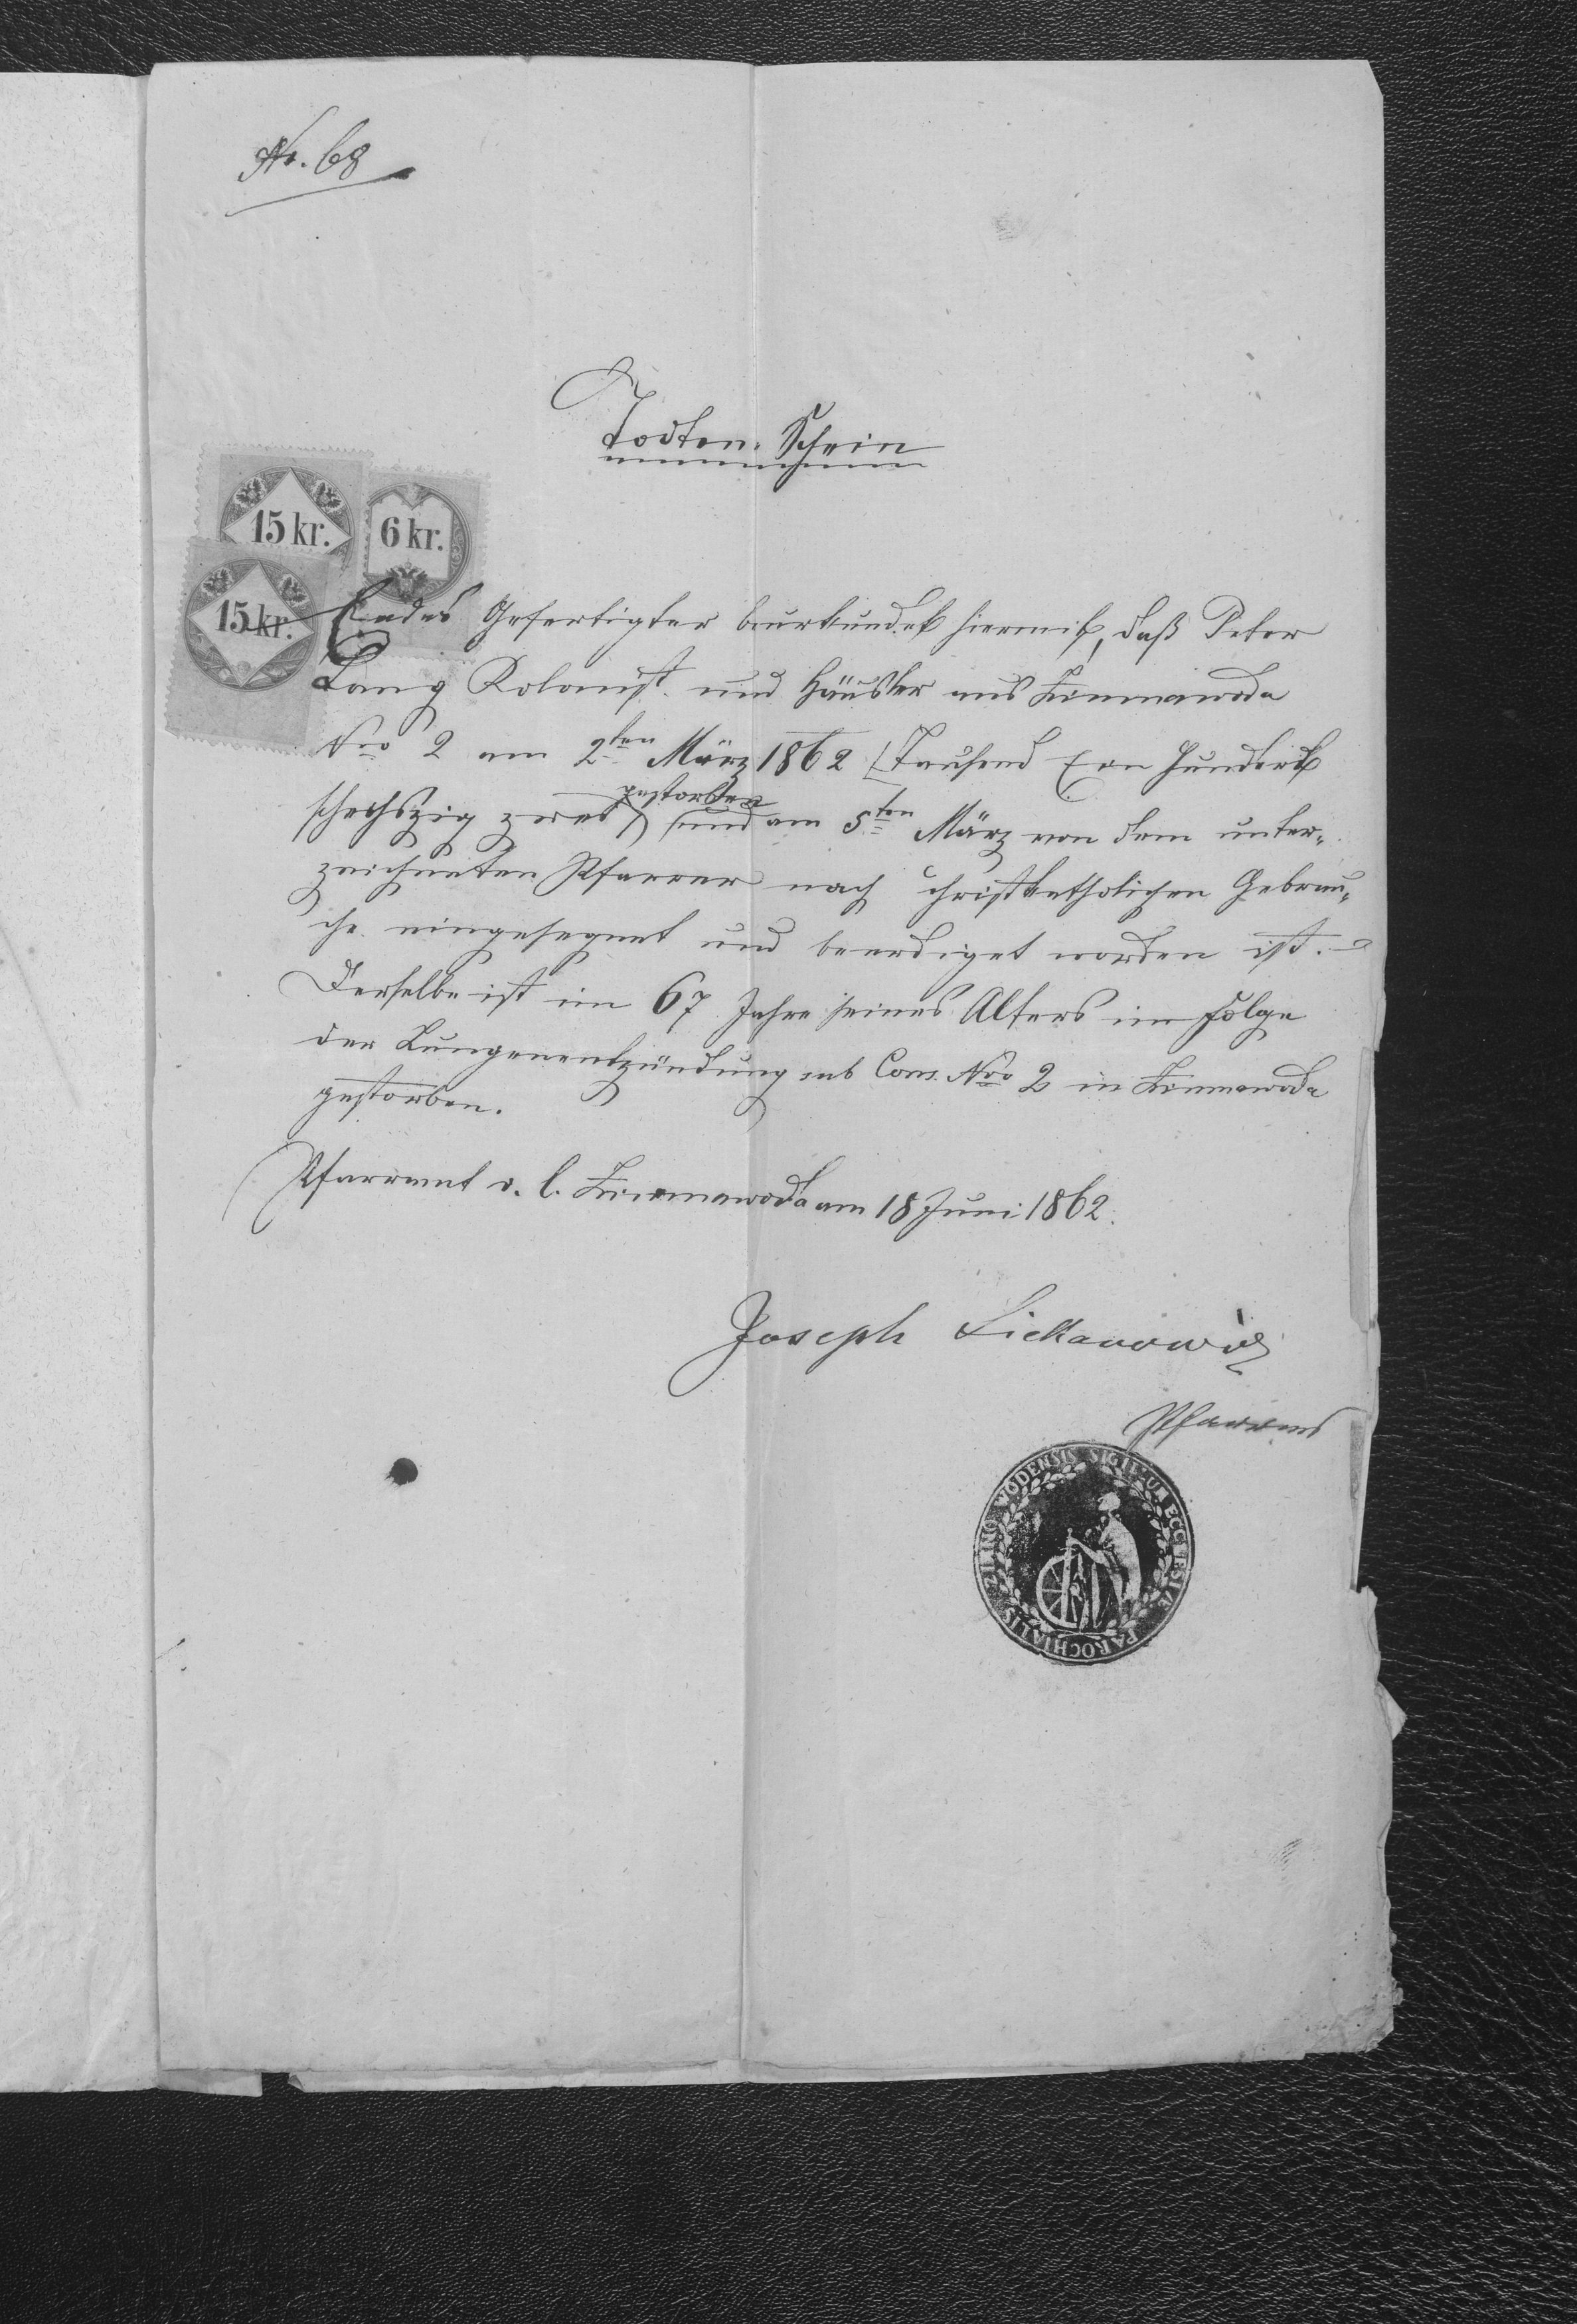 Nr. 68
Todten-Schein
15 kr.
6 kr.
15 kr.
Endes Gefertigter beurkundet hiermit, daß Peter
Lang Kolonist und Häusler aus Zimnawoda
Nro 2 am 2ten März 1862 (Tausend
gestorben
schechszig zwei) und am 5ten März von dem unter-
zeichneten Pfarrer nach christkatholischen Gebrau-
che eingesegnet und beerdiget worden ist.
Derselbe ist im 67 Jahre seines Alters im Folge
der Lungenentzündung sub Cons. Nro 2 in Zimnawoda
gestorben.
Pfarramt r. l. Zimnawoda am 18 Juni 1862.
Joseph
Pfarrer
SIGILLUM ECCLESIÆ PAROCHIALIS WODENSIS